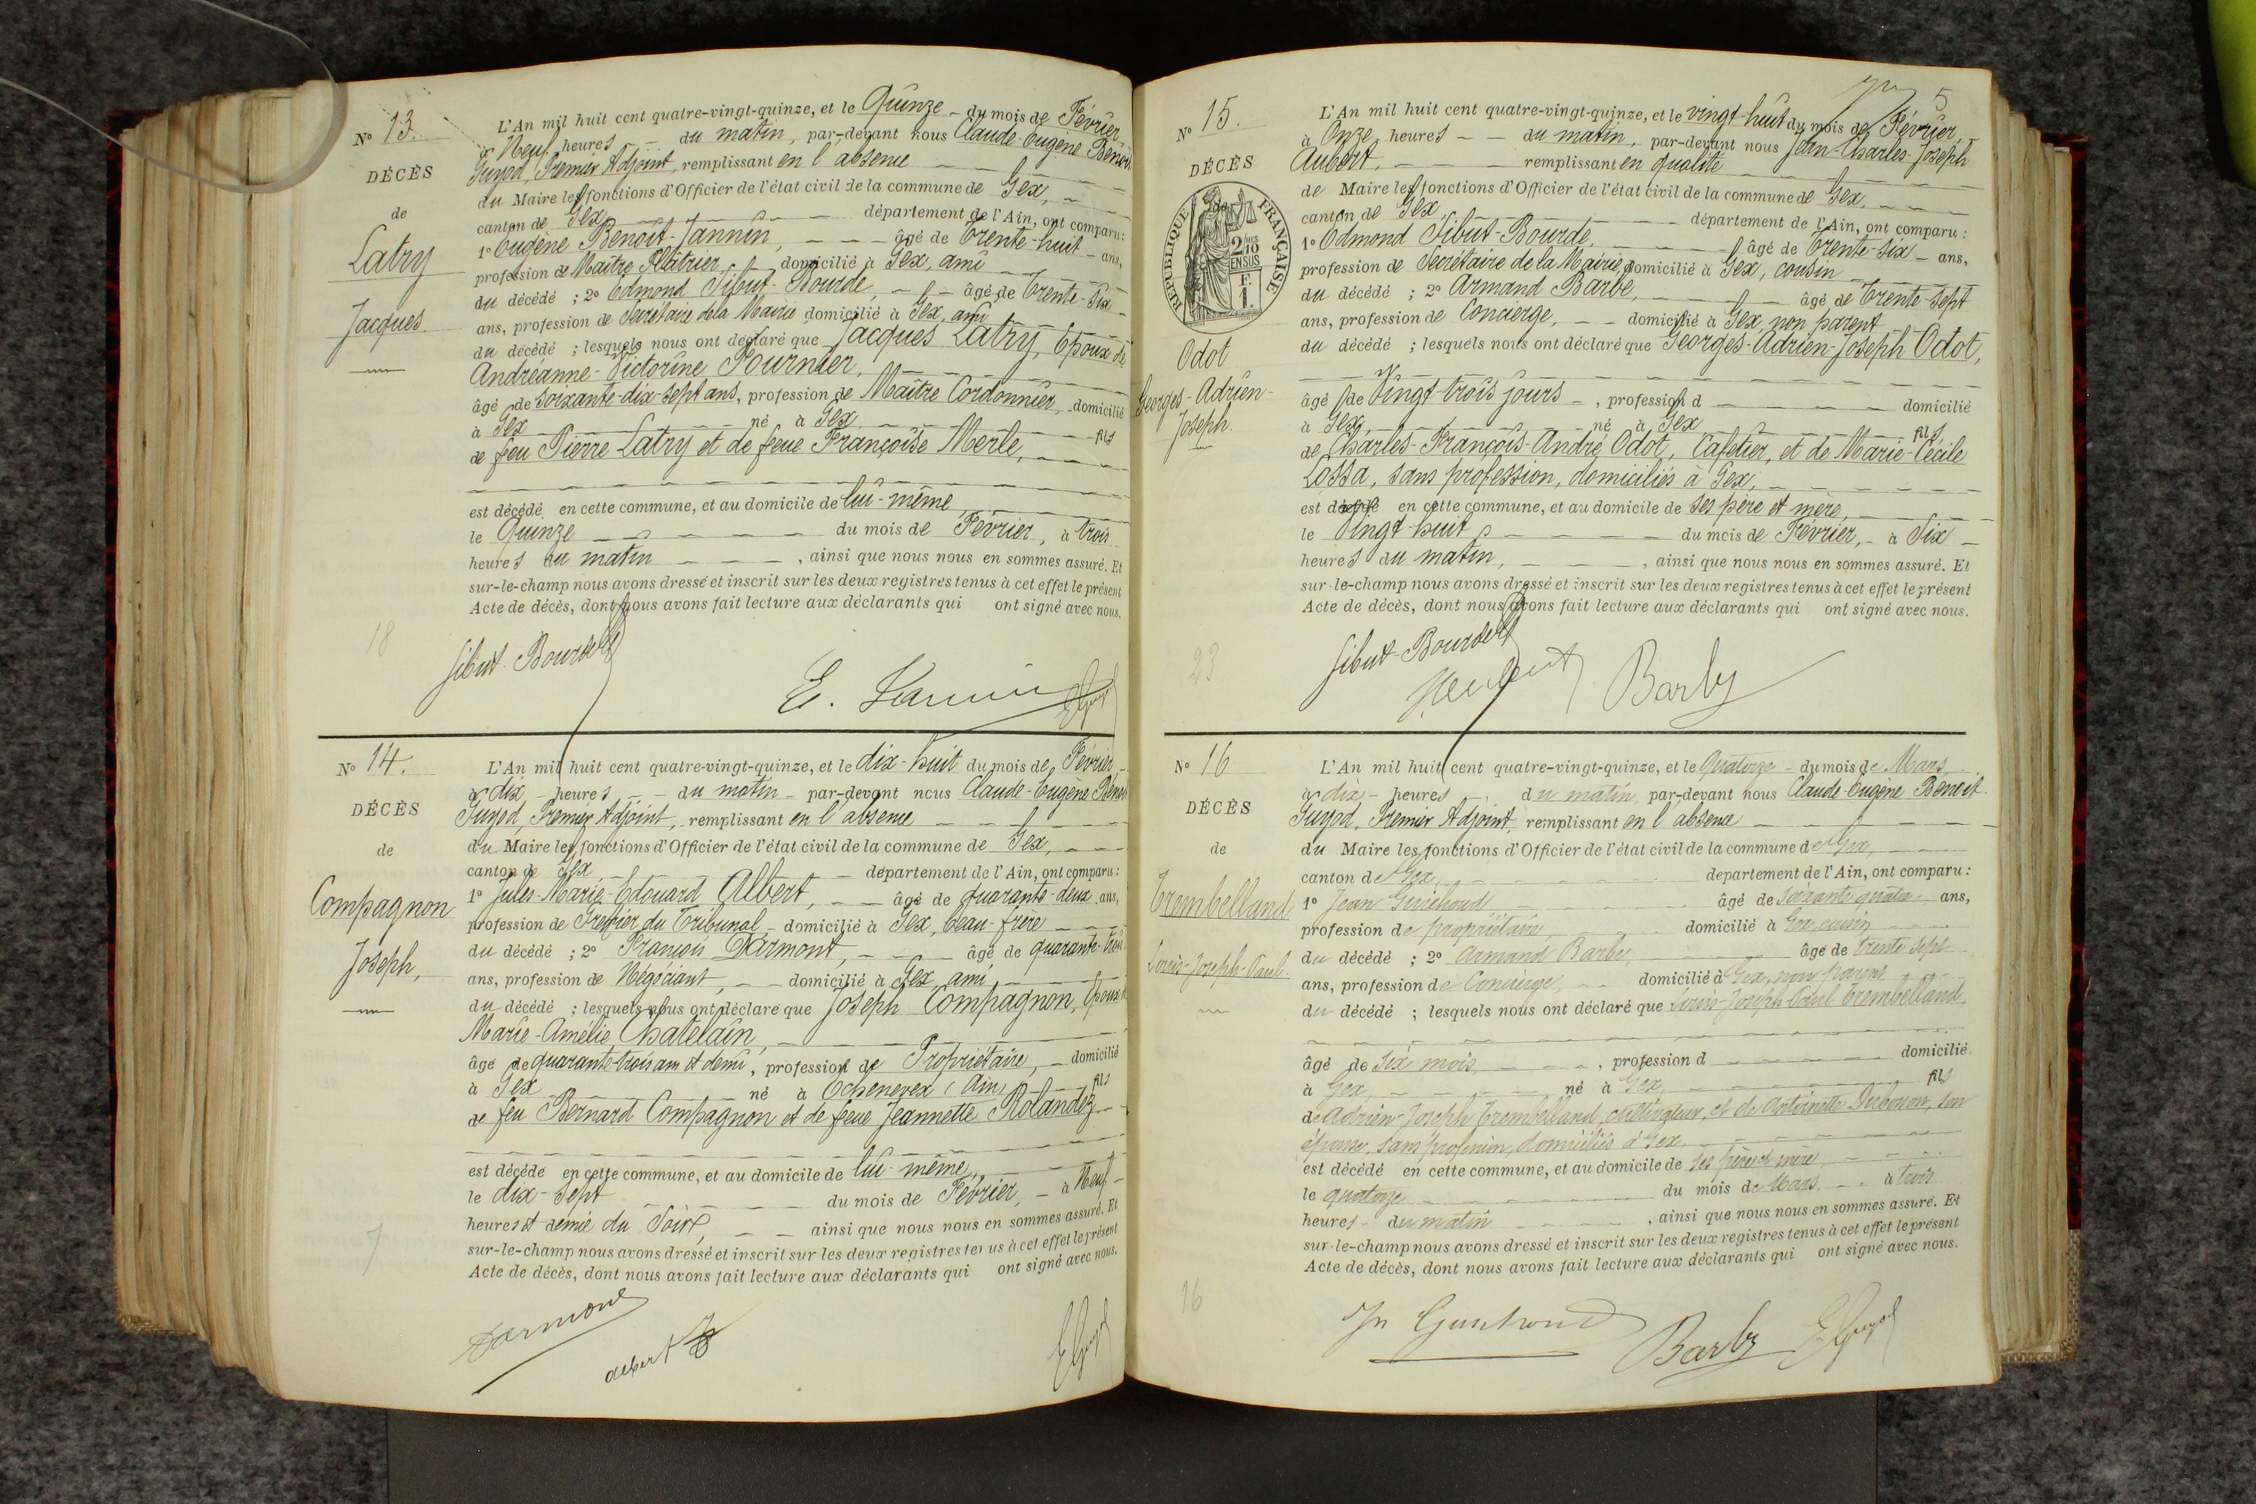 Nº 13.
DÉCÈS
de
Latry
Jacques.
L'An mil huit cent quatre-vingt-quinze, et le Quinze du mois de Février
à Neuf heures du matin, par-devant nous Claude-Eugène Benoit
Guyod, Premier Adjoint, remplissant en l'absence
du Maire les fonctions d'Officier de l'état civil de la commune de Gex,
canton de Gex, département de l'Ain, ont comparu :
1º Eugène Benoit-Jannin, âgé de trente-huit ans,
profession de Maître Plâtrier, domicilié à Gex, ami
du décédé ; 2º Edmond Sibut-Bourde, âgé de trente-six
ans, profession de Secrétaire de la Mairie domicilié à Gex, ami
du décédé ; lesquels nous ont déclaré que Jacques Latry, Epoux de
Andréanne-Victorine Fournier,
âgé de soixante-dix-sept ans, profession de Maître Cordonnier, domicilié
à Gex né à Gex fils
de feu Pierre Latry et de feue Françoise Merle,
est décédé en cette commune, et au domicile de lui-même,
le Quinze du mois de Février, à trois
heures du matin, ainsi que nous nous en sommes assuré. Et
sur-le-champ nous avons dressé et inscrit sur les deux registres tenus à cet effet le présent
Acte de décès, dont nous avons fait lecture aux déclarants qui ont signé avec nous.
18
Sibut-Bourde
E. Jannin
EGuyod
Nº 14.
DÉCÈS
de
Compagnon
Joseph,
L'An mil huit cent quatre-vingt-quinze, et le dix-huit du mois de Février
à dix heures du matin par-devant nous Claude-Eugène Benoit
Guyod, Premier Adjoint, remplissant en l'absence
du Maire les fonctions d'Officier de l'état civil de la commune de Gex,
canton de Gex département de l'Ain, ont comparu :
1º Jules-Marie-Edouard Albert, âgé de quarante-deux ans,
profession de Greffier du Tribunal domicilié à Gex, beau-frère
du décédé ; 2º François Darmont, âgé de quarante-trois
ans, profession de Négociant, domicilié à Gex, ami
du décédé ; lesquels nous ont déclaré que Joseph Compagnon, Epoux de
Marie-Amélie Chatelain,
âgé de quarante-trois ans et demi, profession de Propriétaire, domicilié
à Gex né à Echenevex (Ain) fils
de feu Bernard Compagnon et de feue Jeannette Rolandez
est décédé en cette commune, et au domicile de lui-même,
le dix-sept du mois de Février, à Neuf
heures et demie du Soir, ainsi que nous nous en sommes assuré. Et
sur-le-champ nous avons dressé et inscrit sur les deux registres tenus à cet effet le présent
Acte de décès, dont nous avons fait lecture aux déclarants qui ont signé avec nous.
7
Darmont
Albert
EGuyod
5
Nº 15.
DÉCÈS
de
RÉPUBLIQUE FRANÇAISE
2/10 EN SUS
F. 1.
Odot
Georges-Adrien-
Joseph.
L'An mil huit cent quatre-vingt-quinze, et le vingt-huit du mois de Février,
à Onze heures du matin, par-devant nous Jean-Charles-Joseph
Aubert, remplissant en qualité
de Maire les fonctions d'Officier de l'état civil de la commune de Gex,
canton de Gex département de l'Ain, ont comparu :
1º Edmond Sibut-Bourde, âgé de trente-six ans,
profession de Secrétaire de la Mairie, domicilié à Gex, cousin
du décédé ; 2º Armand Barbe, âgé de trente-sept
ans, profession de Concierge, domicilié à Gex, non parent
du décédé ; lesquels nous ont déclaré que Georges-Adrien-Joseph Odot,
âgé de Vingt-trois jours, profession d domicilié
à Gex né à Gex fils
de Charles-François-André Odot, Cafetier, et de Marie-Cécile
Lossa, sans profession, domiciliés à Gex,
est décédé en cette commune, et au domicile de ses père et mère,
le Vingt-huit du mois de Février, à Six
heures du matin, ainsi que nous nous en sommes assuré. Et
sur-le-champ nous avons dressé et inscrit sur les deux registres tenus à cet effet le présent
Acte de décès, dont nous avons fait lecture aux déclarants qui ont signé avec nous.
23
Sibut-Bourde
Barby
Nº 16
DÉCÈS
de
Trembelland
Louis-Joseph-Paul.
L'An mil huit cent quatre-vingt-quinze, et le Quatorze du mois de Mars
à dix heures du matin, par-devant nous Claude-Eugène Benoit
Guyod, Premier Adjoint, remplissant en l'absence
du Maire les fonctions d'Officier de l'état civil de la commune de Gex,
canton de Gex, département de l'Ain, ont comparu :
1º Jean âgé de soixante-quatre ans,
profession de propriétaire, domicilié à Gex, cousin
du décédé ; 2º Armand Barbe, âgé de trente-sept
ans, profession de Concierge, domicilié à Gex, non parent
du décédé ; lesquels nous ont déclaré que Louis-Joseph-Paul Trembelland,
âgé de Six mois, profession d domicilié
à Gex, né à Gex, fils
de Adrien-Joseph Trembelland, cultivateur, et de Antoinette son
épouse, sans profession, domiciliés à Gex
est décédé en cette commune, et au domicile de ses père et mère
le quatorze du mois de Mars, à trois
heures du matin, ainsi que nous nous en sommes assuré. Et
sur-le-champ nous avons dressé et inscrit sur les deux registres tenus à cet effet le présent
Acte de décès, dont nous avons fait lecture aux déclarants qui ont signé avec nous.
16
Barby
EGuyod